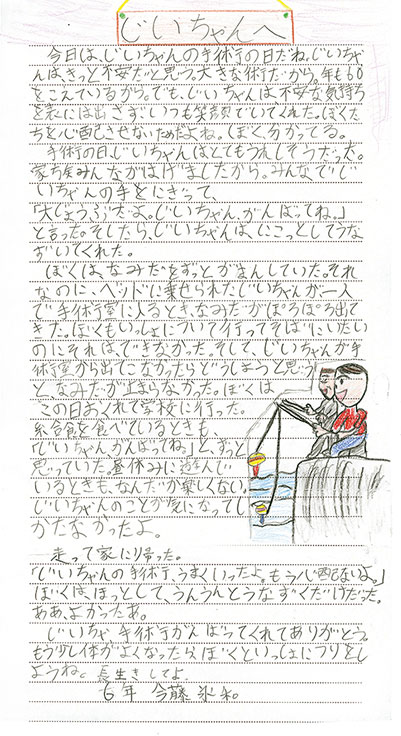 じいちゃんへ
今日は、じいちゃんの手術の日だね。じいちゃ
んは、きっと不安だと思う。大きな術だから。年も60
をこえているから。でも、じいちゃんは、不安な気持ち
を表には出さず、いつも笑顔でいてくれた。ぼくた
ちを心配させないためだよね。ぼく分かってる。
手術の日、じいちゃんはとてもうれしそうだった。
家ち屋みんながはげましたから。みんなで、じ
いちゃんの手をにぎって、
「大じょうぶだよ。じいちゃん、がんばってね。」
と言った。そしたら、じいちゃんは、にこっとしてうな
ずいてくれた。
ぼくは、なみだをずっとがまんしていた。それ
なのに、ベッドに乗せられたじいちゃんが、一人
で手術室に入るとき、なみだがぽろぽろ出て
きた。ぼくもいっしょについて行ってそばにいたい
のにそれは、できなかった。そして、じいちゃんが手
術室から出てこなかったらどうしようと思う
と、なみだが止まらなかった。ぼくは
この日おくれて学校に行った。
給食を食べているときも、
「じいちゃんがんばってね」と、ずっと
思っていた。昼休みに遊んで
いるときも、なんだか楽しくない。
じいちゃんのことが気になってし
かたなかったよ。
走って家に帰った。
「じいちゃんの手術、うまくいったよ。もう心配ないよ。」
ぼくは、ほっとして、うんうんとうなずくだけだった。
ああ、よかったあ。
じいちゃ、手術がんばってくれてありがとう。
もう少し体がよくなったらぼくといっしょにつりをし
ようね。長生きしてよ。
6年 今藤